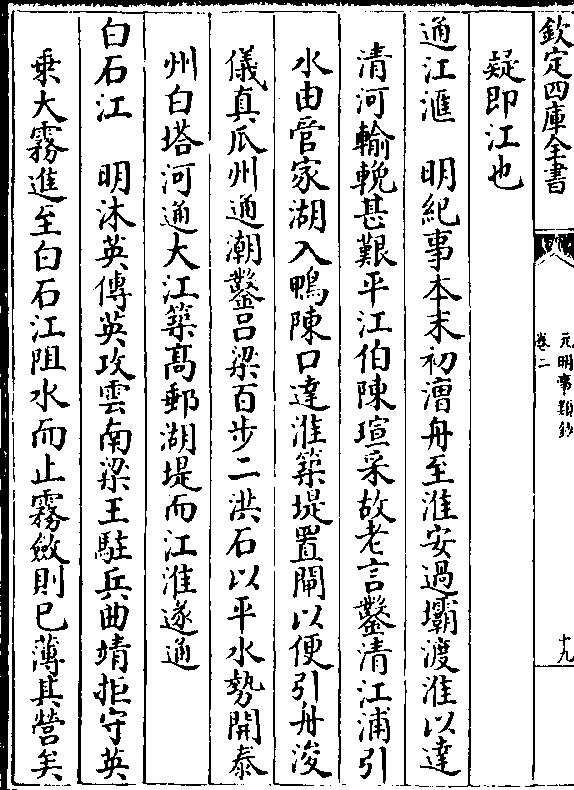 欽定四庫全書
元明事類鈔
卷二
十九
疑即江也
通江滙　明紀事本末初漕舟至淮安過壩渡淮以達
清河輸輓甚艱平江伯陳瑄采故老言鑿清江浦引
水由管家湖入鴨陳口達淮築堤置閘以便引舟浚
儀真瓜州通潮鑿吕梁百步二洪石以平水勢開泰
州白塔河通大江築髙郵湖堤而江淮遂通
白石江　明沐英傅英攻雲南梁王駐兵曲靖拒守英
乗大霧進至白石江阻水而止霧斂則已薄其營矣